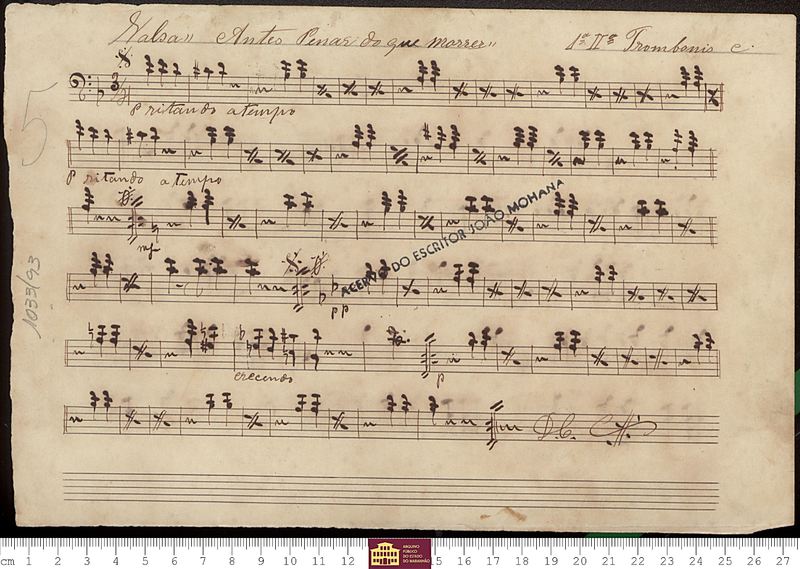 Valsa " Antes Penar do que morrer " 1º II os Trombonis C.
P ritando a tempo
5
P ritando a tempo
mf
ACERVO DO ESCRITOR JOÃO MOHANA
1033/93
pp
crecendo
p
D.C.
cm 1 2 3 4 5 6 7 8 9 10 11 12 5 16 17 18 19 20 21 22 23 24 25 26 27
ARQUIVO
PÚBLICO
DO ESTADO
DO MARANHÃO